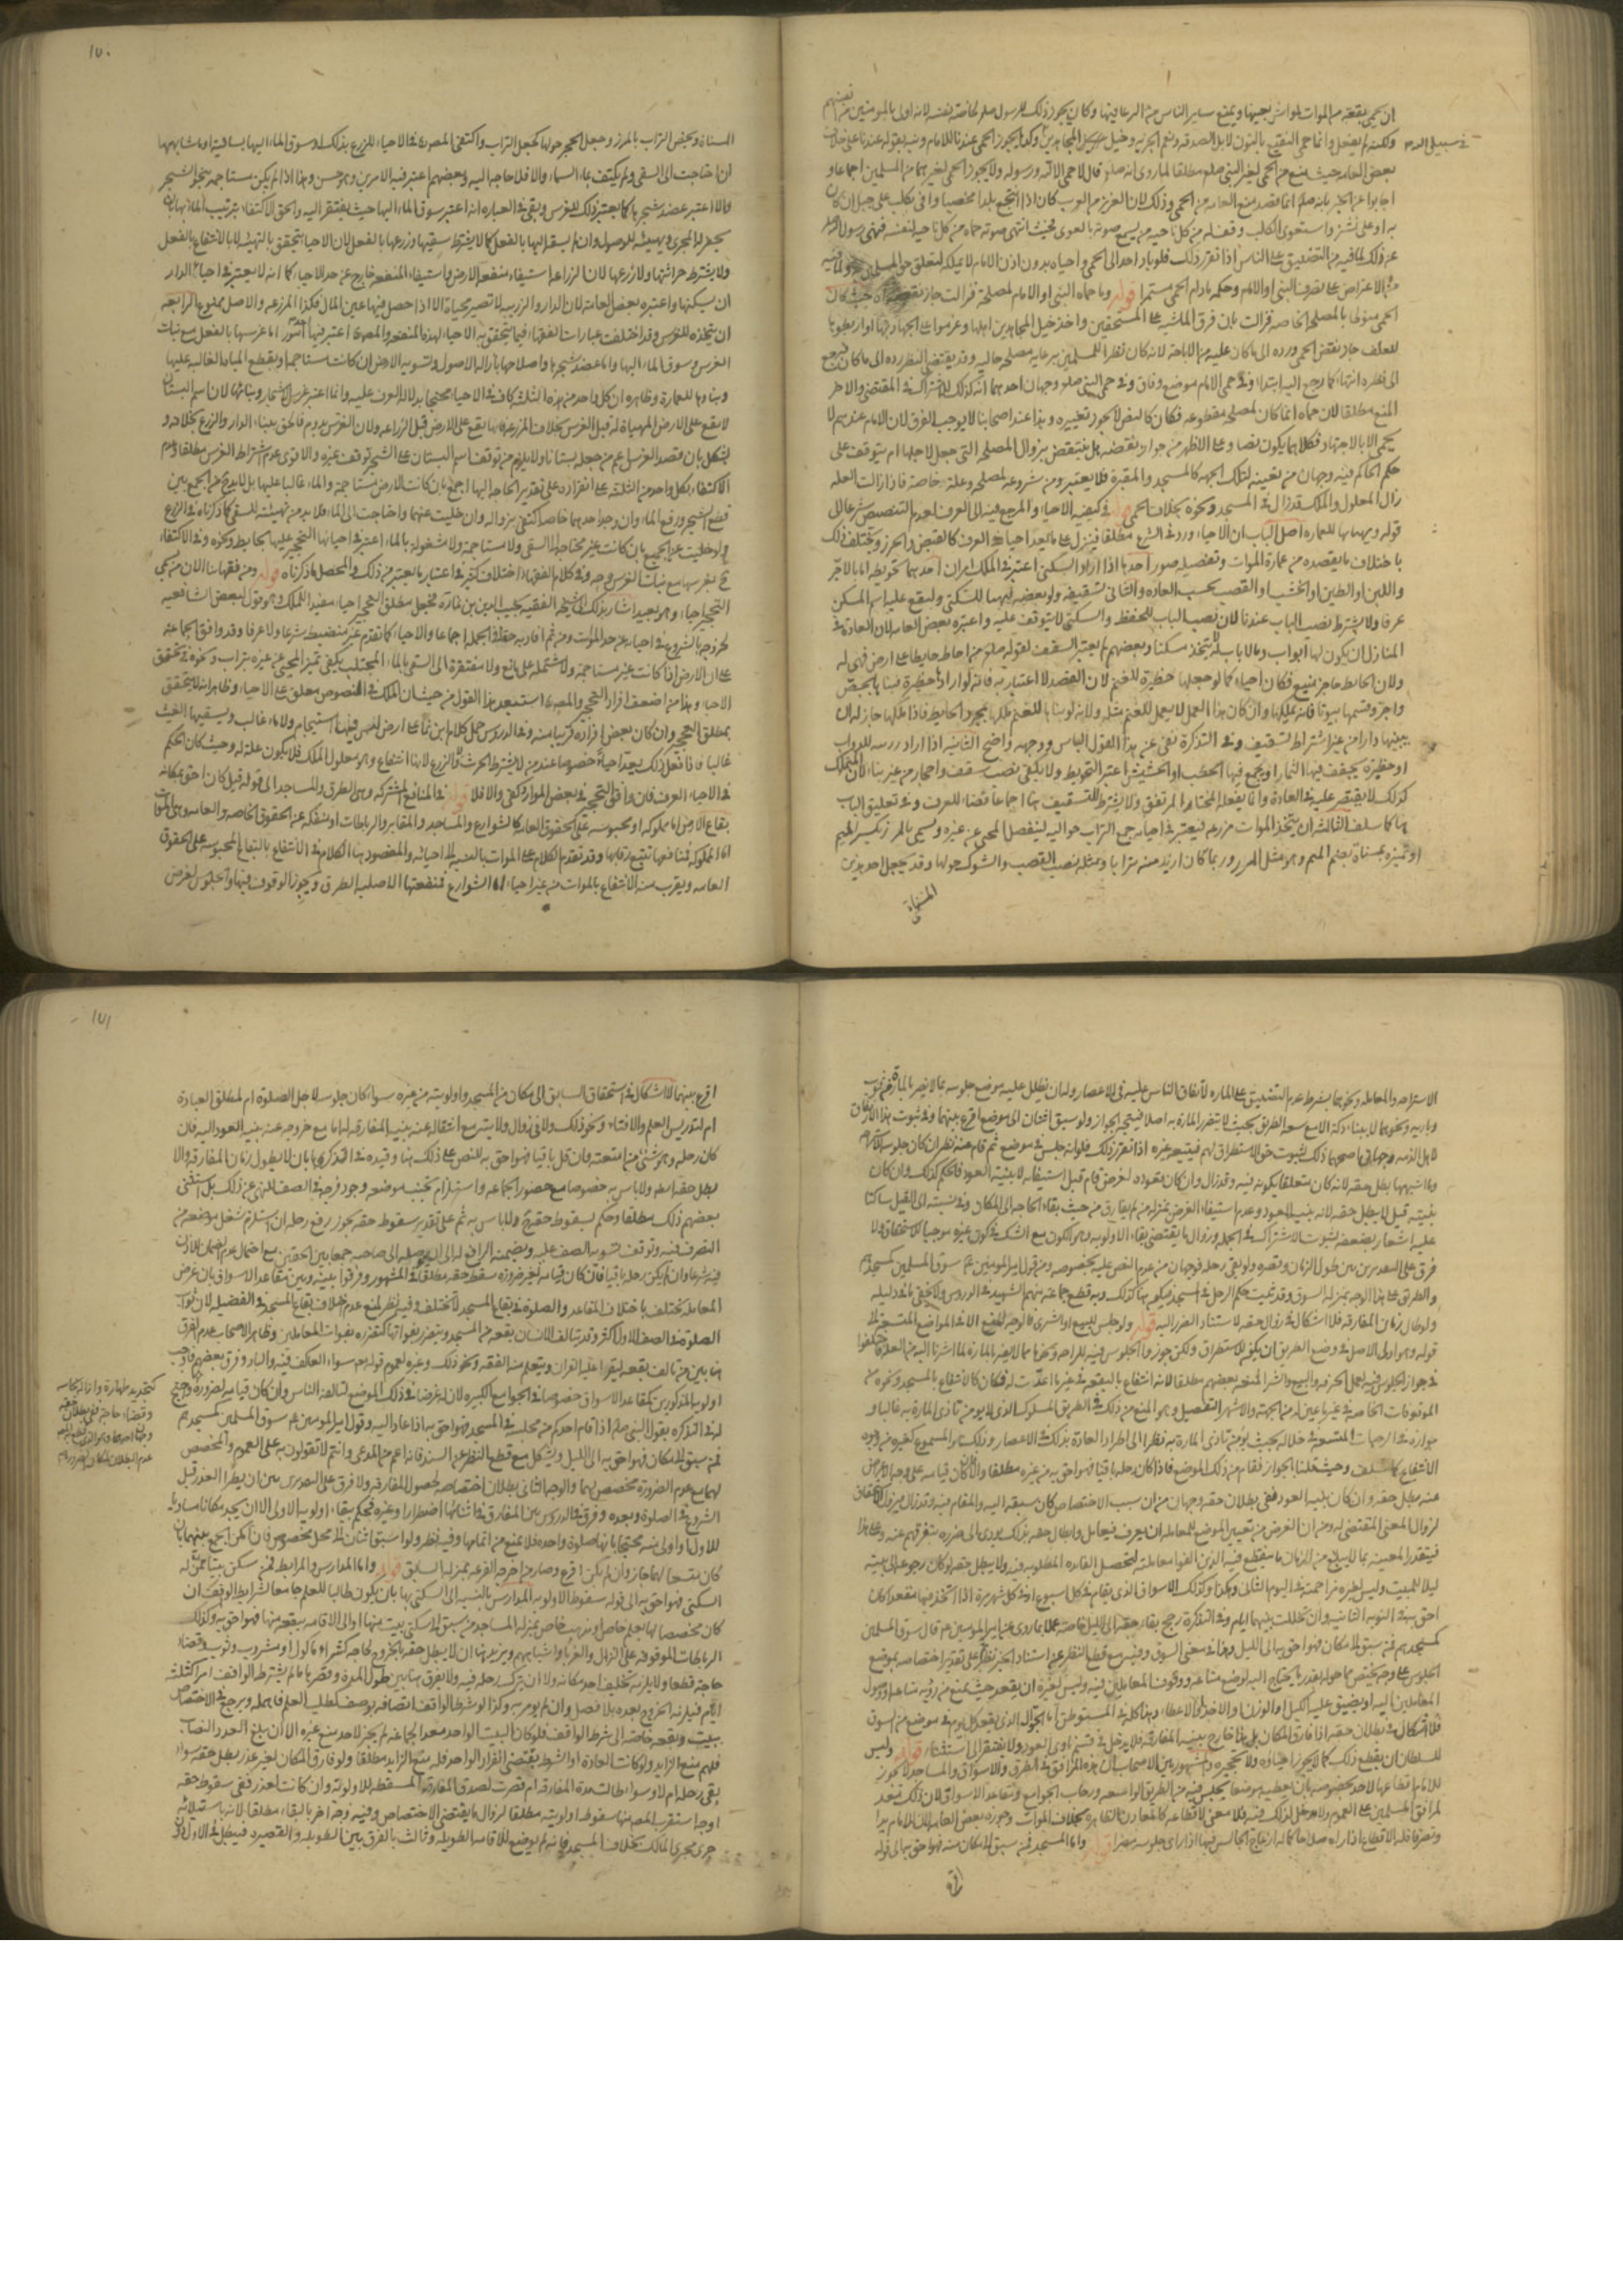 ان يحمي بقعة من الموات لمواش بعينها ويمنع ساير الناس من الرعي فيها وكان يجوز ذلك للرسول صلم لخاصة نفسه لانه اولى بالمومنين من انفسهم
ولكنه لم يفعل وانما حمى النقيع بالنون لابل الصدقه ونعم الجزيه وخيل المجاهدين في سبيل الله وكذا يجوز الحمى عندنا للامام
بعض العامه حيث منع من الحمى لغير النبي صلم مطلقا لما روى انه صلم قال لا حمى الا لله ورسوله ولا يجوز الحمى لغيرهما من المسلمين اجماعا و
وذلك لان العزيز من العرب كان اذا انتجع بلدا مخصبا وافى بكلب على جبل ان كان
به او على نشز واستعوى الكلب ووقف له من كل ناحيه من يسمع صوته بالعوى فحيث انتهى صوته حماه من كل ناحيه لنفسه فنهى رسول الله صلم
عن ذلك لما فيه من التضييق على الناس اذا تقرر ذلك فلو بادر احد الى الحمى واحياه بدون اذن الامام لا يملكه لتعلق حق المسلمين به ولما فيه
من الاعتراض على تصرف النبي او الامام وحكمه ما دام الحمى مستمرا قوله وما حماه النبي او الامام لمصلحة فزالت جاز نقضه
الحمى منوطا بالمصلحه الخاصه فزالت بان فرق الماشيه على المستحقين واخذ خيل المجاهدين اهلها وعزموا على الجهاد بها
للعلف جاز نقض الحمى ورده الى ما كان عليه من الاباحه لانه كان نظرا للمسلمين برعايه مصلحه حاليه وقد يقتضي النظر رده الى ما كان فيرجع
الى نظره انتهاء كما رجع اليه ابتداء وفي حمى الامام موضع وفاق وفي حمى النبي صلم وجهان احدهما انه كذلك للاشتراك في المقتضي والاخر
المنع مطلقا لان حماه انما كان لمصلحه مقطوعه فكان كالنص لا يجوز تغييره وهذا عند اصحابنا لا يوجب الفرق لان الامام عندهم لا
يحمي الا بالاجتهاد فكلاهما يكون نصا وعلى الاظهر من جواز نقضه هل ينتقض بزوال المصلحه التي جعل لاجلها ام يتوقف على
حكم الحاكم فيه وجهان من تعيينه لتلك الجهه كالمسجد والمقبرة فلا يتغير ومن شروعه لمصلحه وعلة خاصة فاذا زالت العله
زال المعلول والملك قد زال في المسجد ونحوه بخلاف الحمى قوله في كيفيه الاحياء والمرجع فيه الى العرف لعدم التنصيص شرعا الى
قوله وهيئها للعماره اصل الباب ان الاحياء ورد في الشرع مطلقا فينزل على ما يعد احياء في العرف كالقبض والحرز ويختلف ذلك
باختلاف ما يقصده من عمارة الموات وتفصيله صور احدها اذا اراد السكنى اعتبر في الملك امران احدهما تحويطه اما بالاجر
واللبن او الطين او الخشب او القصب بحسب العاده والثاني تسقيفه ولو بعضه ليهيا للسكنى وليقع عليه اسم المسكن
عرفا ولا يشترط نصب الباب عندنا لان نصب الباب للحفظ والسكنى لا يتوقف عليه واعتبره بعض العامه لان العادة في
المنازل ان يكون لها ابواب وما لا باب له لا يتخذ مسكنا وبعضهم لم يعتبر السقف لقوله صلم من احاط حايطا على ارض فهي له
ولان الحايط حاجز منيع فكان احياء كما لو جعلها حظيرة للغنم لان القصد لا اعتبار به فانه لو اراد حظيرة فبناها بالجص
واجر وقسمها بيوتا فانه يملكها وان كان هذا العمل لا يعمل للغنم مثله ولانه لو بناها للغنم ملكها بمجرد الحايط فاذا ملكها جاز له ان
يبنيها دارا من غير اشتراط تسقيف وفي التذكرة نفى عن هذا القول الباس ووجهه واضح الثانيه اذا اراد زريبه للدواب
او حظيرة يجفف فيها الثمار او يجمع فيها الحطب او الحشيش اعتبر التحويط ولا يكفي نصب سعف واحجار من غير بناء لان المتملك
كذلك لا يقتصر عليه في العادة وانما يفعله المجتاز المرتفق ولا يشترط التسقيف هنا اجماعا قضاء للعرف وفي تعليق الباب
هنا كما سلف الثالث ان يتخذ الموات مزرعه فيعتبر في احيائه جمع التراب حواليه لينفصل المحيى عن غيره ويسمى بالمرز بكسر الميم
او تميزه بمسناة بضم الميم وهو مثل المرز وربما كان ازيد منه ترابا ومثله نصب القصب والشوك حولها وقد يجعل احد هذين
المسناة
١٧٠
المسناة ويخص التراب بالمرز وجعل الحجر حولها كجعل التراب واكتفى المصره في الاحياء للزرع بذلك وسوق الماء اليها بساقية او ما شابهها
ان احتاجت الى السقي ولم يكتف بماء السماء والا فلا حاجه اليه وبعضهم اعتبر فيه الامرين وهو حسن وهذا اذا لم يكن مستاجمه بنحو الشجر
والا اعتبر عضد شجرها كما يعتبر ذلك للغرس وبقي في العباره انه اعتبر سوق الماء اليها حيث يفتقر اليه والحق الاكتفاء بترتيب الماء لها بان
يحفر له المجرى ويهيئه للوصول وان لم يسقه اليها بالفعل كما لا يشترط سقيها وزرعها بالفعل لان الاحياء يتحقق بالتهيئه لا بالانتفاع بالفعل
ولا يشترط حراثتها ولا زرعها لان الزراعه استيفاء منفعه الارض واستيفاء المنفعه خارج عن حد الاحياء كما انه لا يعتبر في احياء الدار
ان يسكنها واعتبره بعض العامه لان الدار والزريبه لا تصير محياة الا اذا حصل فيها عين المال فكذا المزرعه والاصل ممنوع الرابعه
ان يتخذه للغرس وقد اختلفت عبارات الفقهاء فيما يتحقق به الاحياء لهذه المنفعه والمصره اعتبر فيها احد امور اما غرسها بالفعل مع نبات
الغرس وسوق الماء اليها واما عضد شجرها واصلاحها بازاله الاصول وتسويه الارض ان كانت مستاجمه او بقطع المياه الغالبه عليها
وبناؤها للعمارة وظاهره ان كل واحد من هذه الثلثه كاف في الاحياء محتجا بدلاله العرف عليه وانما اعتبر غرس الاشجار ونباتها لان اسم البستان
لا يقع على الارض المهياة له قبل الغرس بخلاف المزرعه فانها تقع على الارض قبل الزراعه ولان الغرس يدوم فالحق ببناء الدار والزرع بخلافه و
يشكل بان قصد الغرس اعم من جعله بستانا ولا يلزم من توقف اسم البستان على الشجر توقف غيره والاقوى عدم اشتراط الغرس مطلقا وعدم
الاكتفاء بكل واحد من الثلثه على انفراده على تقدير الحاجه اليها اجمع بان كانت الارض مستاجمة والماء غالبا عليها بل لا بد في من الجمع بين
قطع الشجر ورفع الماء وان وجد احدهما خاصه اكتفى بزواله وان خليت عنهما واحتاجت الى الماء فلا بد من تهيئته للسقي كما ذكرناه في الزرع
ولو خليت عن الجميع بان كانت غير محتاجة الى السقي ولا مستاجمة ولا مشغولة بالماء اعتبر في احيائها التحجير عليها بحايط ونحوه وفي الاكتفاء
ح بغرسها مع نبات الغرس وجه وفي كلام الفقهاء اختلاف كثير في اعتبار ما يعتبر من ذلك والمحصل ما ذكرناه قوله ومن فقهائنا الان من يسمي
التحجير احياء وهو بعيد اشار بذلك الى شيخه الفقيه نجيب الدين بن نما ره فجعل مطلق التحجير احياء مفيدا للملك وهو قول لبعض الشافعيه
لخروجه بالشروع في احيائه عن حد الموت ومن ثم افاد به حقا في الجمله اجماعا والاحياء كما تقدم غير منضبط شرعا ولا عرفا وقد وافق الجماعه
على ان الارض اذا كانت غير مستاجمة ولا مشتملة على مانع ولا مفتقرة الى السقي بالماء المجتلب يكفي تميز المحيى عن غيره بتراب ونحوه في تحقق
الاحياء وهذا من اضعف افراد التحجير والمصره استبعد هذا القول من حيث ان الملك في النصوص معلق على الاحياء وظاهر انه لا يتحقق
بمطلق التحجير وان كان بعض افراده قريبا منه وفي الدروس حمل كلام ابن نما على ارض ليس فيها استيجام ولا ماء غالب ويسقيها الغيث
غالبا فاذا فعل ذلك يعد احياء خصوصا عند من لا يشترط الحرث ولا الزرع لانهما انتفاع وهو معلول الملك فلا يكون علة له وحيث كان الحكم
في الاحياء العرف فان وافق التحجير في بعض الموارد كفى والا فلا قوله في المنافع المشتركه وهي الطرق والمساجد الى قوله قيل كان احق بمكانه
بقاع الارض اما مملوكه او محبوسه على الحقوق العامه كالشوارع والمساجد والمقابر والرباطات او منفكه عن الحقوق الخاصه والعامه وهي الموات
اما المملوكه فمنافعها تتبع رقابها وقد تقدم الكلام على الموات بالنسبه الى احيائه والمقصود هنا الكلام في الانتفاع بالبقاع المحبوسه على الحقوق
العامه ويقرب منه الانتفاع بالموات من غير احياء اما الشوارع فمنفعتها الاصليه الطرق ويجوز الوقوف فيها والجلوس لغرض
الاستراحه والمعامله ونحوهما بشرط عدم التضييق على الماره لاتفاق الناس عليه في الاعصار وله ان يظلل عليه موضع جلوسه بما لا يضر بالمارة
وباريه ونحوهما لا ببناء دكة الا مع سعه الطريق بحيث لا يتضرر المارة به اصلا فيتجه الجواز ولو سبق اثنان الى موضع اقرع بينهما وفي ثبوت هذا الارتفاق
لاهل الذمه وجهان اصحهما ذلك لثبوت حق الاستطراق لهم فيتبعه غيره اذا تقرر ذلك فلو انه جلس في موضع ثم قام عنه نظر ان كان جلوسه لاستراحه
وما اشبهها بطل حقه لانه كان متعلقا بكونه فيه وقد زال وان كان لعوده لغرض فقام قبل استيفائه لا بنيه العود فالحكم كذلك وان كان
بنيته قيل لا يبطل حقه
فرق على التقديرين بين طول الزمان وقصره ولو بقي رحله فوجهان من عدم النص عليه بخصوصه ومن قول امير المومنين عم سوق المسلمين كمسجدهم
والطريق على هذا الوجه بمنزله السوق وقد ثبت حكم الرحل في المسجد فيكون هنا كذلك وبه قطع جماعه منهم الشهيد في الدروس ولا يخفى ما في دليله
ولو طال زمان المفارقه فلا اشكال في زوال حقه لاستناد الضرر اليه قوله ولو جلس للبيع او الشرى فالوجه المنع الا في المواضع المتسعه الى
قوله وهو اولى الاصل في وضع الطريق ان يكون للاستطراق ولكن جوزوا الجلوس فيه للراحه ونحوها مما لا يضر بالمارة لما اشرنا اليه من العله واختلفوا
في جواز الجلوس فيه لعمل الحرفه والبيع والشراء فمنعه بعضهم مطلقا لانه انتفاع بالبقعه في غير ما اعدت له فكان كالانتفاع بالمسجد ونحوه من
الموقوفات الخاصه في غير ما عين له من الجهة والاشهر التفصيل وهو المنع من ذلك في الطريق المسلوك الذي لا يومن تاذي المارة به غالبا و
جوازه في الرحبات المتسعه في خلاله بحيث يومن تاذي المارة به نظرا الى اطراد العادة بذلك في الاعصار وذلك هو المسموع كغيره من وجوه
الانتفاع كما سلف وحيث قلنا بالجواز فقام من ذلك الموضع فاذا كان رحله باقيا فهو احق به من غيره مطلقا وان كان قيامه على وجه الاعراض
عنه بطل حقه وان كان بنيه العود ففي بطلان حقه وجهان من ان سبب الاختصاص كان سبقه اليه والمقام فيه وقد زال فيزول الاستحقاق
لزوال المعنى المقتضي له ومن ان الغرض من تعيين الموضع للمعامله ان يعرف فيعامل وابطال حقه بذلك يودي الى ضرره بتفرقهم عنه وعلى هذا
فيتقدر الغيبه بما لا يبلغ من الزمان ما ينقطع فيه الذين الفوا معاملته لتحصل الفايده المطلوبه فيه ولا يبطل حقه لو كان رجوعه الى بيته
ليلا للمبيت وليس لغيره مزاحمته في اليوم الثاني وهكذا وكذلك الاسواق الذي يقام في كل اسبوع او في كل شهر مرة اذا اتخذ فيها مقعدا كان
احق به في النوبه الثانيه وان تخللت بينهما ايام وفي التذكرة رجح بقاء حقه الى الليل خاصه عملا بما روى عن امير المومنين عم قال سوق المسلمين
كمسجدهم فمن سبق الى مكان فهو احق به الى الليل وهذا في معنى السوق وفيه مع قطع النظر عن استناد الخبر نظر على تقدير اختصاصه بموضع
الجلوس على وجه يختص بما حوله بقدر ما يحتاج اليه لوضع متاعه ووقوف المعاملين فيه وليس لغيره ان يقعد حيث يمنع من رؤيه متاعه او وصول
المعاملين اليه او يضيق عليه الكيل او الوزن او الاخذ والاعطاء وهذا كله في المستوطن اما الجوال الذي يقعد كل يوم في موضع من السوق
فلا اشكال في بطلان حقه اذا فارق المكان بل هذا خارج بنيه المفارقه فلا يدخل في قسم ناوي العود ولا يفتقر الى استثنائه قوله وليس
للسلطان ان يقطع ذلك كما لا يجوز احياؤه ولا تحجيره والمشهور بين الاصحاب ان هذه المرافق في الطرق والاسواق والمساجد لا يجوز
للامام اقطاعها لاحد بخصوصه بان يعطيه موضعا يجلس فيه من الطريق الواسعه ورحاب الجوامع ومقاعد الاسواق لان ذلك معد
لمرافق المسلمين على العموم ولا مدخل للملك فيه فلا معنى لاقطاعه كالمعادن الظاهره بخلاف الموات وجوزه بعض العامه لان للامام يدا
وتصرفا فله الاقطاع اذا راه صلاحا كما له ازعاج الجالس فيها اذا راى جلوسه مضرا قوله واما المسجد فمن سبق الى مكان منه فهو احق به الى قوله
اقرع
١٧١
اقرع بينهما لا اشكال في استحقاق السابق الى مكان من المسجد واولويته من غيره سواء كان جلوسه لاجل الصلوة ام لمطلق العبادة
ام لتدريس العلم والافتاء ونحو ذلك ولا في زوال ولايته مع انتقاله عنه بنيه المفارقه له اما مع خروجه عنه بنيه العود اليه فان
كان رحله وهو شيء من امتعته وان قل باقيا فهو احق به للنص على ذلك هنا وقيده في الذكرى بان لا يطول زمان المفارقه والا
بطل حقه ايضا ولا باس به خصوصا مع حضور الجماعه واستلزام تجنب موضعه وجود فرجة في الصف للنهي عن ذلك بل استثنى
بعضهم ذلك مطلقا وحكم بسقوط حقه ح ولا باس به ثم على تقدير سقوط حقه يجوز رفع رحله ان استلزم شغل موضعه من
التصرف فيه وتوقف تسويه الصف عليه ويضمنه الرافع له الى ان يوصله الى صاحبه جمعا بين الحقين مع احتمال عدم الضمان للاذن
فيه شرعا وان لم يكن رحله باقيا فان كان قيامه لغير ضرورة سقط حقه مطلقا في المشهور وفرقوا بينه وبين مقاعد الاسواق بان غرض
المعامله يختلف باختلاف المقاعد والصلوة في بقاع المسجد لا تختلف وفيه نظر لمنع عدم اختلاف بقاع المسجد في الفضيله لان ثواب
الصلوة في الصف الاول اكثر وقد تتالف الانسان بقعه من المسجد ويتضرر بفواتها كتضرره بفوات المعاملين وظاهر الاصحاب عدم الفرق
هنا بين من تالف بقعه ليقرا عليه القران ويتعلم منه الفقه ونحو ذلك وغيره لعموم قوله تع سواء العاكف فيه والباد وفرق بعضهم فاوجب
اولويه المذكورين كمقاعد الاسواق خصوصا في الجوامع الكبيره لان له غرضا في ذلك الموضع لتالفه الناس وان كان قيامه لضرورة
كتجديد طهارة وازاله نجاسه
وقضاء حاجه ففي بطلان حقه
وجهان احدهما وهو الذي قطع به المص
عدم البطلان لمكان الضرورة
له في التذكره بقول النبي صلم اذا قام احدكم من مجلسه في المسجد فهو احق به اذا عاد اليه وقول امير المومنين عم سوق المسلمين كمسجدهم
فمن سبق الى مكان فهو احق به الى الليل ويشكل مع قطع النظر عن السند فانه اعم من المدعى وانتم لا تقولون به على العموم والمخصص
لهما مع عدم الضرورة مخصص لهما والوجه الثاني بطلان اختصاصه لحصول المفارقه ولا فرق على التقديرين بين ان يطرا العذر قبل
الشروع في الصلوة وبعده وفرق في الدروس بين المفارق في اثنائها اضطرارا وغيره فحكم ببقاء اولويه الاول الا ان يجد مكانا مساويا
للاول او اولى منه محتجا بانها صلوة واحدة فلا يمنع من اتمامها وفيه نظر ولو استبق اثنان الى محل مخصوص فان امكن الجمع بينهما بان
كان متسعا لهما جاز وان لم يكن اقرع وصار من اخرجته القرعه بمنزله السابق قوله واما المدارس والمرابط فمن سكن بيتا ممن له
السكنى فهو احق به الى قوله سقوط الاولويه المدارس بالنسبه الى السكنى بها بان يكون طالبا للعلم جامعا لشرايط الوقف ان
كان مخصصا لها بعلم خاص او مذهب خاص بمنزله المساجد من سبق الى سكنى بيت منها او الى الاقامه ببقعه منها فهو احق به وكذلك
الرباطات الموقوفه على النزال والغرباء واشباههم ويزيد هنا ان لا يبطل حقه بالخروج لحاجه كشراء ماكول او مشروب وثوب وقضاء
حاجه قطعا ولا يلزمه تخليف احد مكانه ولا ان يترك رحله فيه ولا يفرق هنا بين طول المدة وقصرها ما لم يشترط الواقف امرا كثلثه
ايام فيلزمه الخروج بعده بلا فصل وان لم يومر به وكذا لو شرط الواقف اتصافه بوصف كطلب العلم فاهمله ويرجع في الاختصاص
ببيت وبقعه خاصه الى شرط الواقف فلو كان البيت الواحد معدا لجماعه لم يجز لاحد منع غيره الا ان يبلغ العدد النصاب
فلهم منع الزايد ولو كانت العادة او الشرط يقتضي انفراد الواحد فله منع الزايد مطلقا ولو فارق المكان لغير عذر بطل حقه سواء
بقي رحله ام لا وسواء طالت مدة المفارقه ام قصرت لصدق المفارقه المسقطه للاولويه وان كانت لعذر ففي سقوط حقه
اوجه استقرب المصره منها سقوط اولويته مطلقا لزوال ما يقتضي الاختصاص وفيه وجه اخر بالبقاء مطلقا لانه باستيلائه
جرى مجرى المالك بخلاف المسجد فانه لم يوضع للاقامه الطويله وثالث بالفرق بين الطويله والقصيره فيبطل في الاول دون